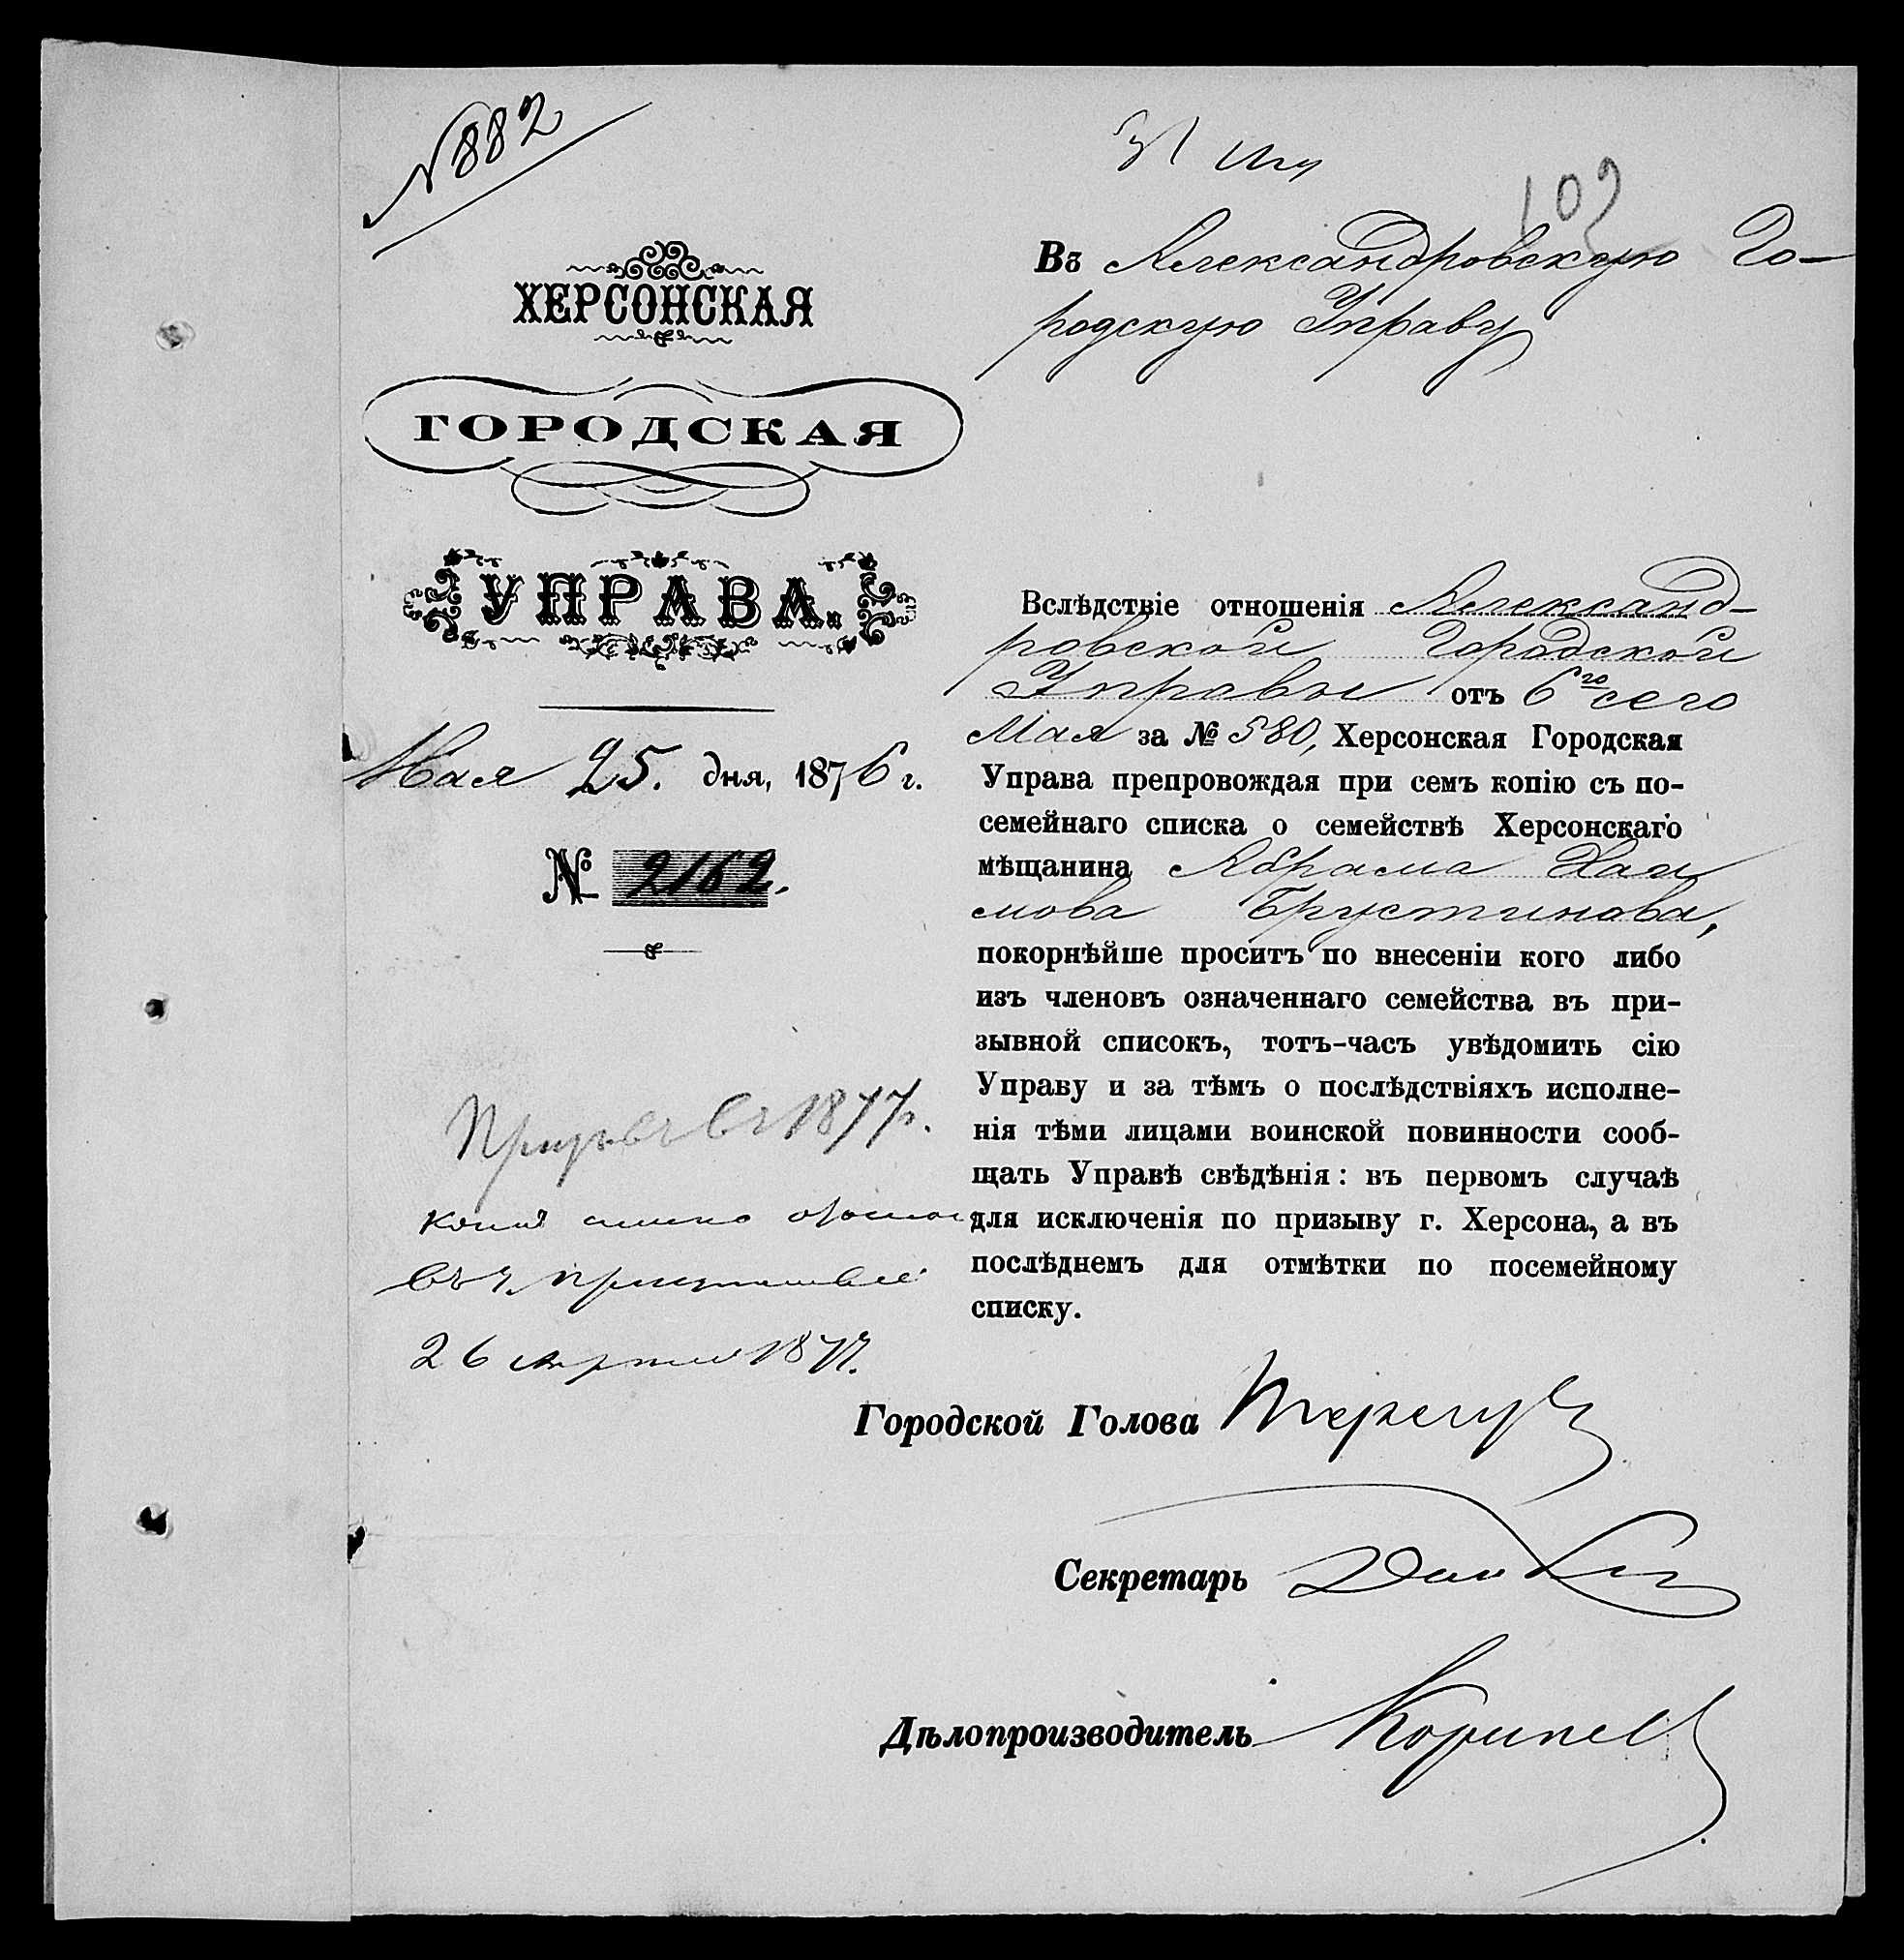 № 882
109
ХЕРСОНСКАЯ
ГОРОДСКАЯ
УПРАВА.
Мая 25. дня, 1876 г.
№ 2162.
Въ Александровскую Го-
родскую Управу
Вслѣдствіе отношенія Александ-
ровской Городской
Управы отъ 6го сего
Мая за № 580, Херсонская Городская
Управа препровождая при семъ копію съ по-
семейнаго списка о семействѣ Херсонскаго
мѣщанина Абрама Хаи
мова Брустинова,
покорнѣйше проситъ по внесеніи кого либо
изъ членовъ означеннаго семейства въ при-
зывной списокъ, тотъ-часъ увѣдомить сію
Управу и за тѣмъ о послѣдствіяхъ исполне-
нія тѣми лицами воинской повинности сооб-
щать Управѣ свѣдѣнія: въ первомъ случаѣ
для исключенія по призыву г. Херсона, а въ
послѣднемъ для отмѣтки по посемейному
списку.
1877
26 1877.
Городской Голова
Секретарь
Дѣлопроизводитель